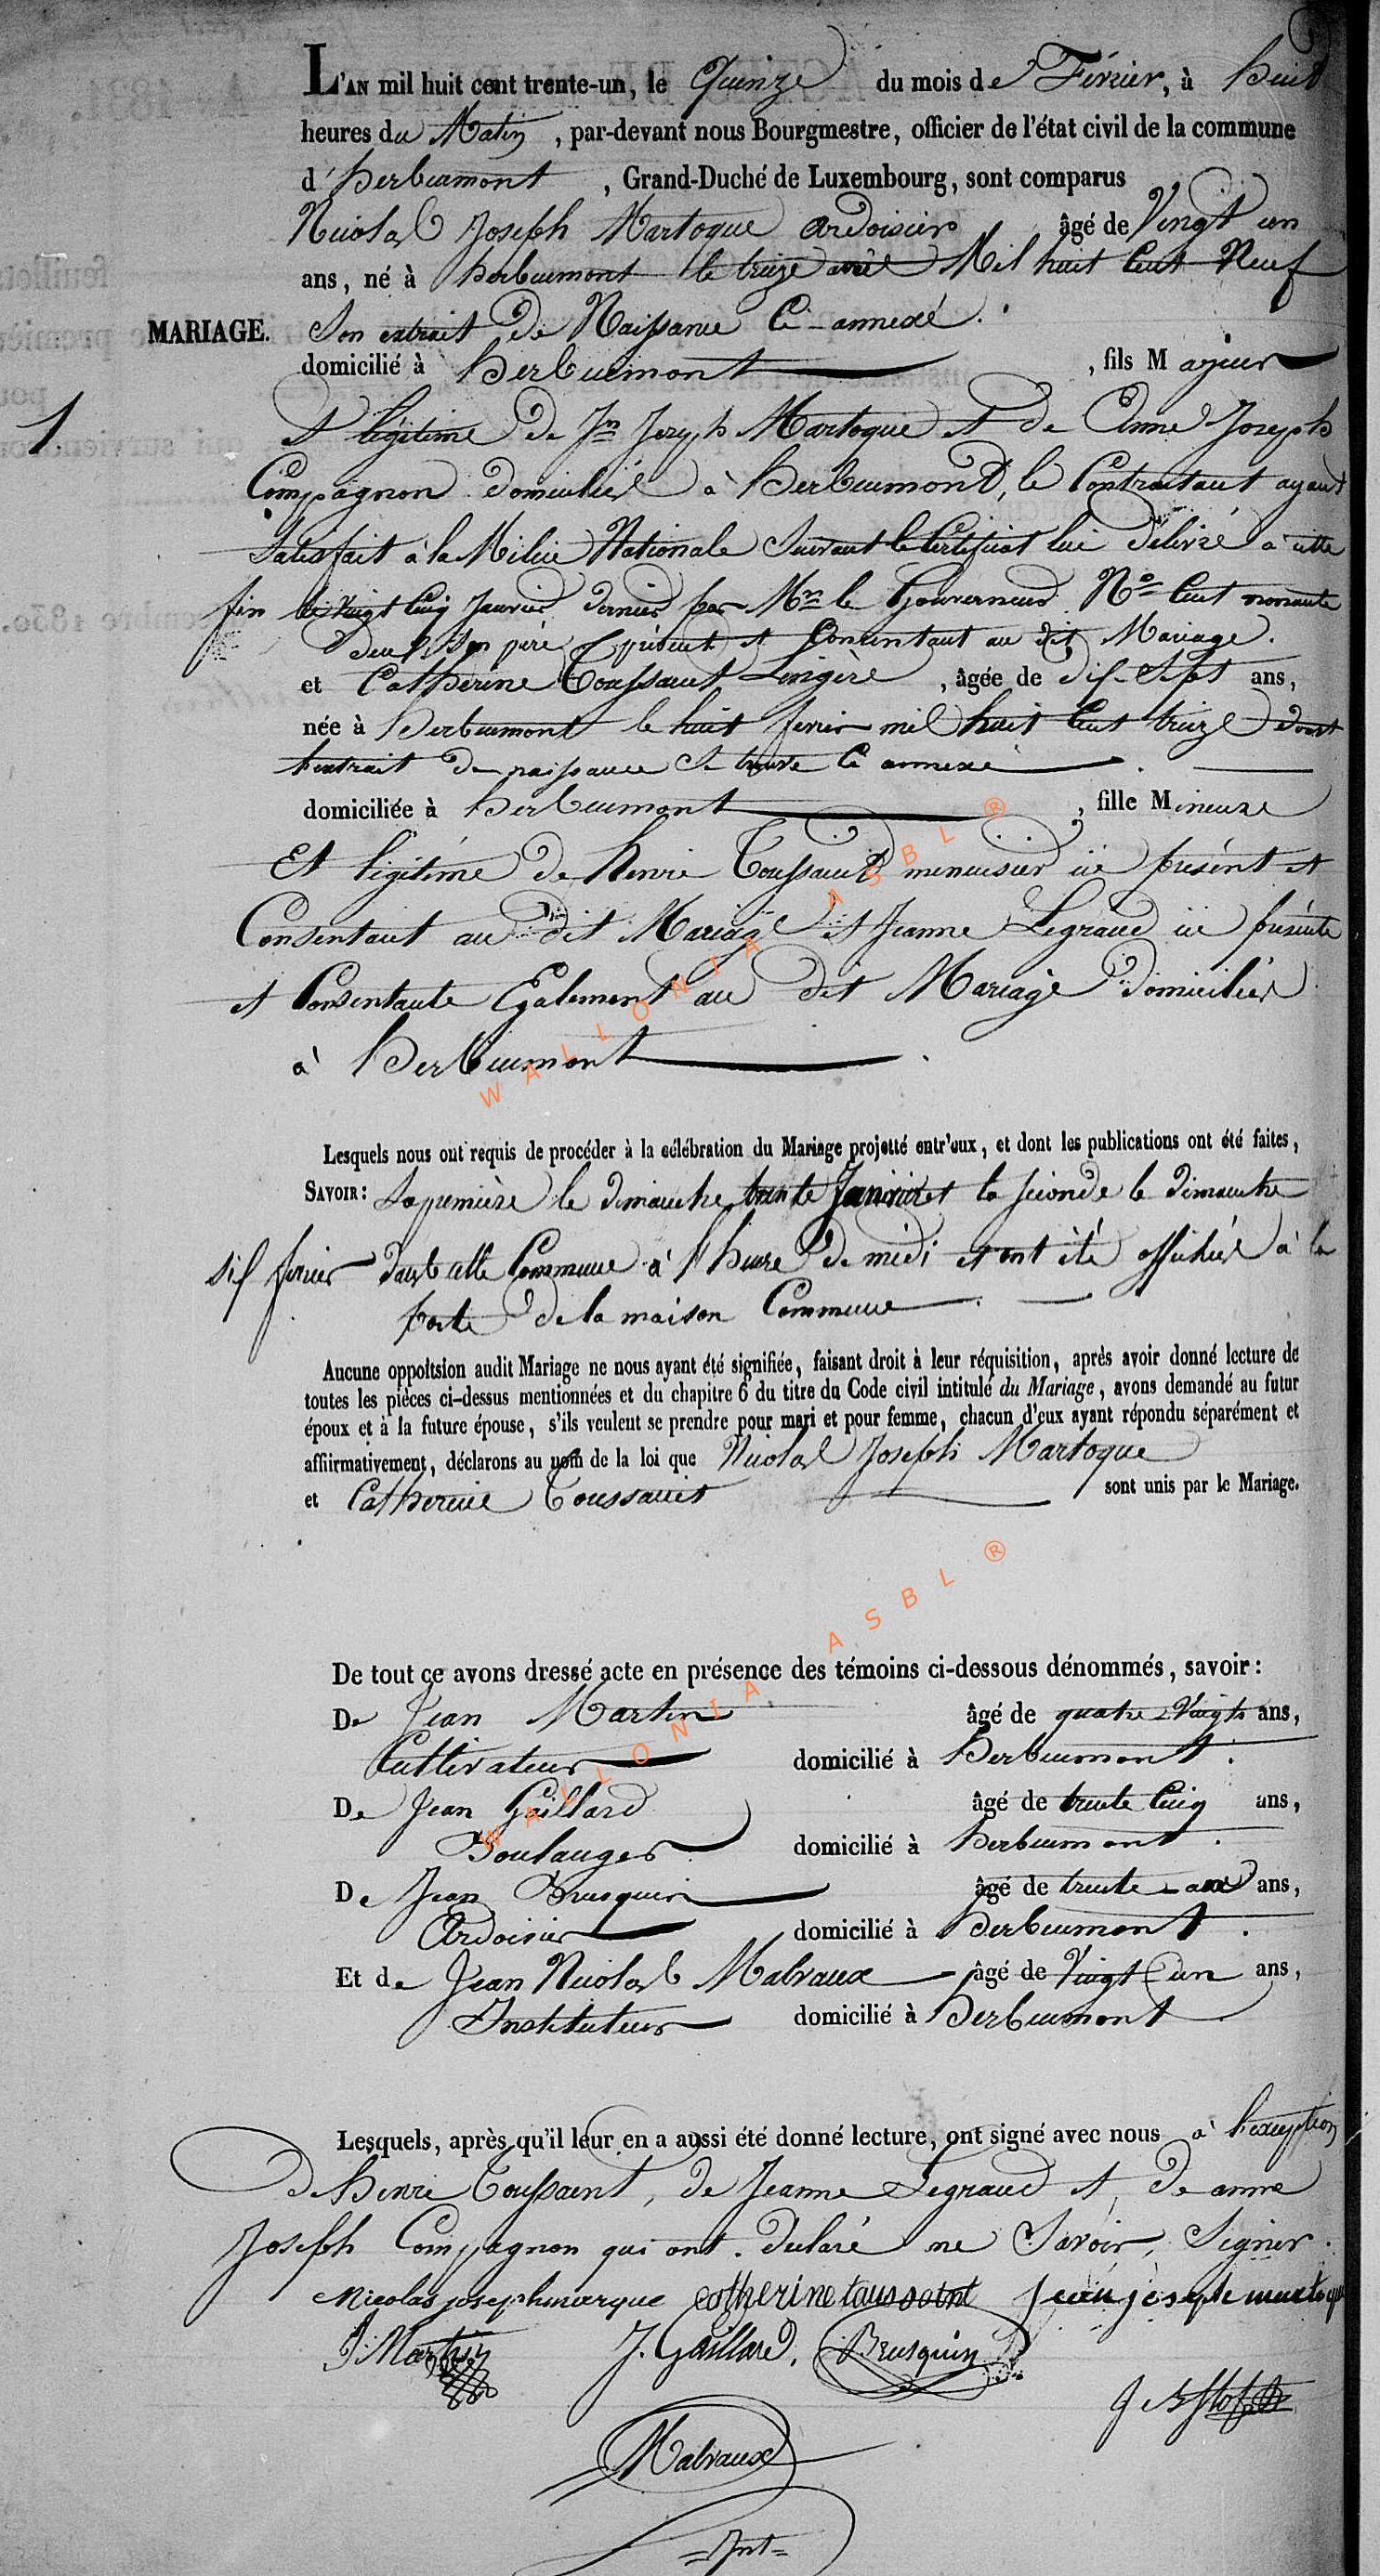 L'AN mil huit cent trente-un, le Quinze du mois de Février, à huit
heures du Matin, par-devant nous Bourgmestre, officier de l'état civil de la commune
d'herbeumont, Grand-Duché de Luxembourg, sont comparus
Nicolas Joseph Martoque ardoisier âgé de Vingt un
ans, né à herbeumont le treize avril Mil huit Cent Neuf
MARIAGE. Son extrait de Naissance Ci-annexé.
domicilié à herbeumont, fils Majeur
1
et légitime de Jn Joseph Martoque et de Anne Joseph
Compagnon domiciliés à herbeumont, le Contractant ayant
Satisfait à la Milice Nationale Suivant le Certificat lui délivré à cette
fin le vingt Cinq Janvier dernier par Mr le Gouverneur No Cent nonante
deux Son père présent et Consentant au dit Mariage.
et Catherine Toussaint Lingère, âgée de dix-sept ans,
née à herbeumont le huit fevrier mil huit Cent treize dont
l'extrait de naissance se trouve Ci annexé
domiciliée à herbeumont, fille Mineure
Et légitime de henri Toussaint menuisier ici présent et
Consentant au dit Mariage et Jeanne Legrand ici présente
et Consentante Egalement au dit Mariage domiciliés
à herbeumont
Lesquels nous ont requis de procéder à la célébration du Mariage projetté entr'eux, et dont les publications ont été faites,
SAVOIR: La première le dimanche trente Janvier et la seconde le dimanche
six fevrier dans cette Commune à l'heure de midi et ont été affichés à la
porte de la maison Commune
Aucune oppoitsion audit Mariage ne nous ayant été signifiée, faisant droit à leur réquisition, après avoir donné lecture de
toutes les pièces ci-dessus mentionnées et du chapitre 6 du titre du Code civil intitulé du Mariage, avons demandé au futur
époux et à la future épouse, s'ils veulent se prendre pour mari et pour femme, chacun d'eux ayant répondu séparément et
affiirmativement, déclarons au nom de la loi que Nicolas Joseph Martoque
et Catherine Toussaint sont unis par le Mariage.
De tout ce avons dressé acte en présence des témoins ci-dessous dénommés, savoir:
De Jean Martin âgé de quatre Vingts ans,
Cultivateur domicilié à herbeumont.
De Jean Gaillard âgé de trente Cinq ans,
Boulanger domicilié à herbeumont.
De Jean Brusquin âgé de trente ans,
Ardoisier domicilié à herbeumont.
Et de Jean Nicolas Malvaux âgé de Vingt un ans,
Instituteur domicilié à herbeumont
Lesquels, après qu'il leur en a aussi été donné lecture, ont signé avec nous à l'exception
De henri Toussaint, de Jeanne Legrand et de anne
Joseph Compagnon qui ont déclaré ne Savoir Signer.
Nicolas joseph marque catherine taussaint jean joseph martoque
J. Martin J. Gaillard, Brusquin
Malvaux
=Int=
WALLONIA ASBL ®
WALLONIA ASBL ®